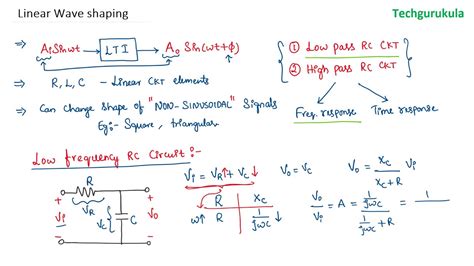 Linear Wave shaping
Techgurukula
⇒ Ai Sinωt → LTI → Ao Sin(ωt+ϕ)
⇒ R, L, C - Linear CKT elements
⇒ Can change shape of "NON-SINUSOIDAL" Signals
Eg:- Square, triangular
① Low pass RC CKT
② High pass RC CKT
Freq. response
Time response
Low frequency RC Circuit:-
R
+ +
Vi VR Vc C Vo
- -
Vi = VR↑ + Vc↓
R Xc
ω↑ R 1/jωc ↓
Vo = Vc
Vo = Xc/(Xc+R)
Vo/Vi = A = (1/jωc)/(1/jωc + R) = 1/